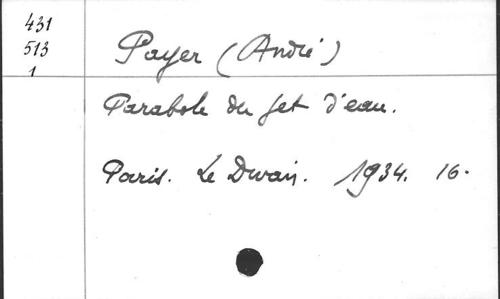 431
513
1
Payer (André)
Parabole du Jet d'eau.
Paris. Le Divan. 1934. 16.